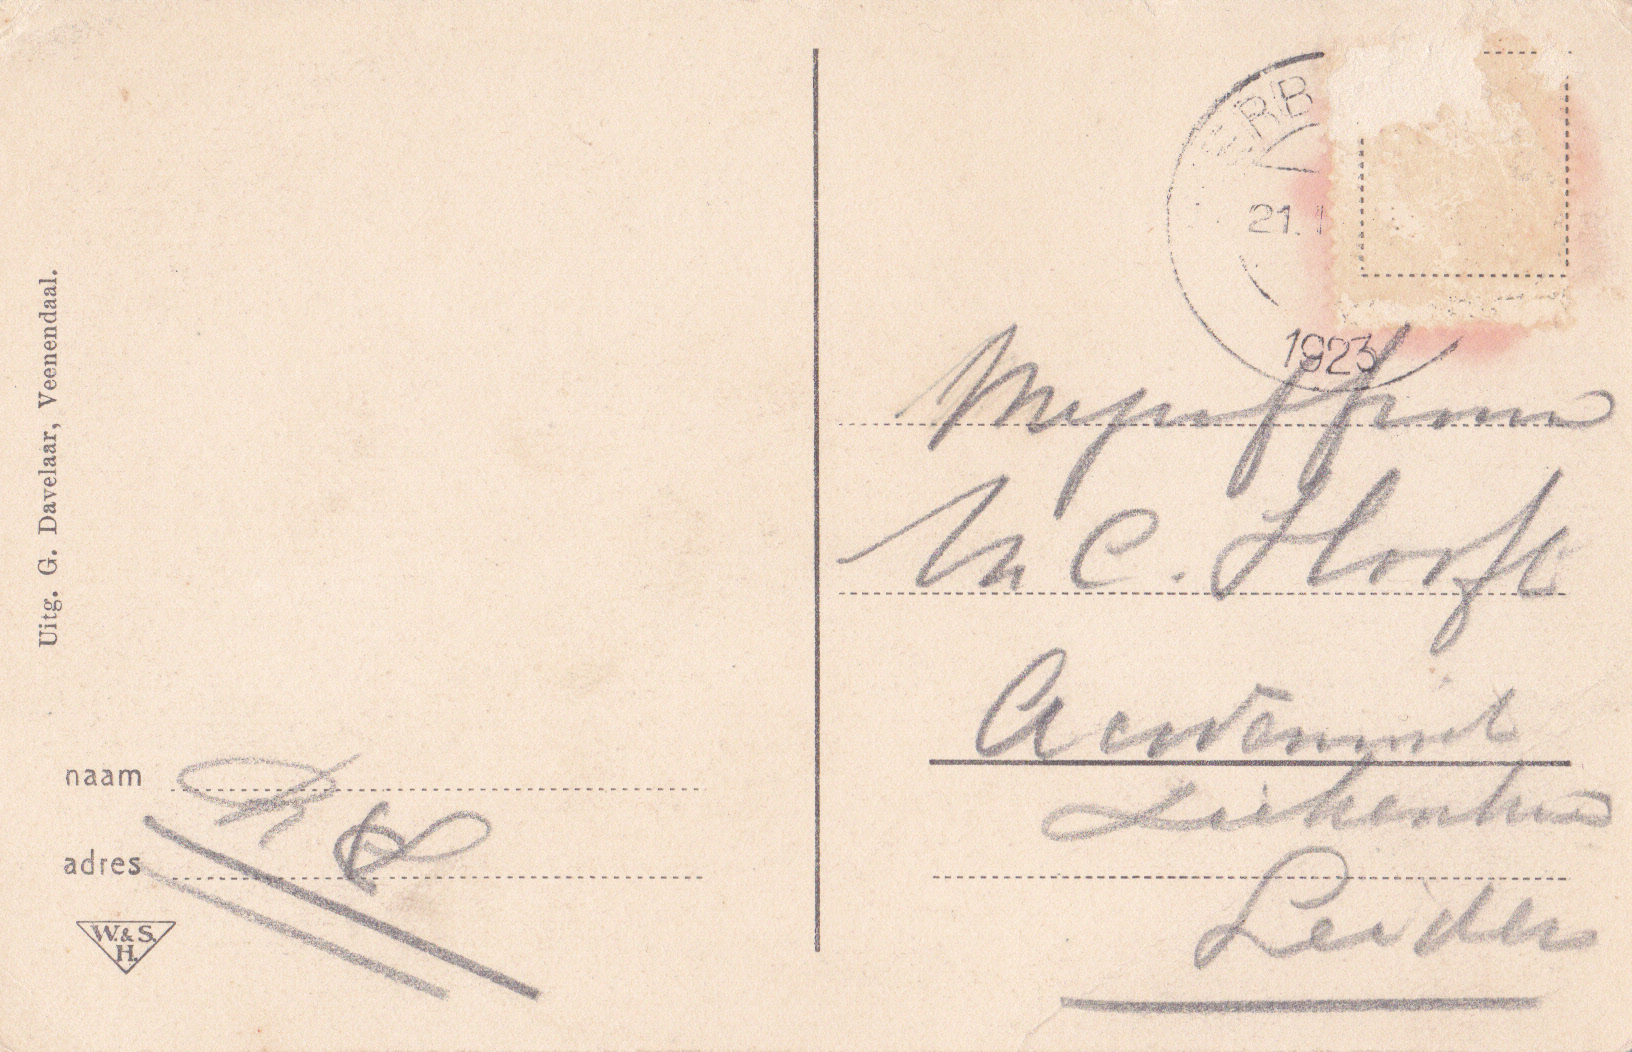 Uitg. G. Davelaar, Veenendaal.
naam
adres
W. & S.
H.
ERB
21.
1923
Mejuffrouw
M C. Hooft
Academisch
Ziekenhuis
Leiden